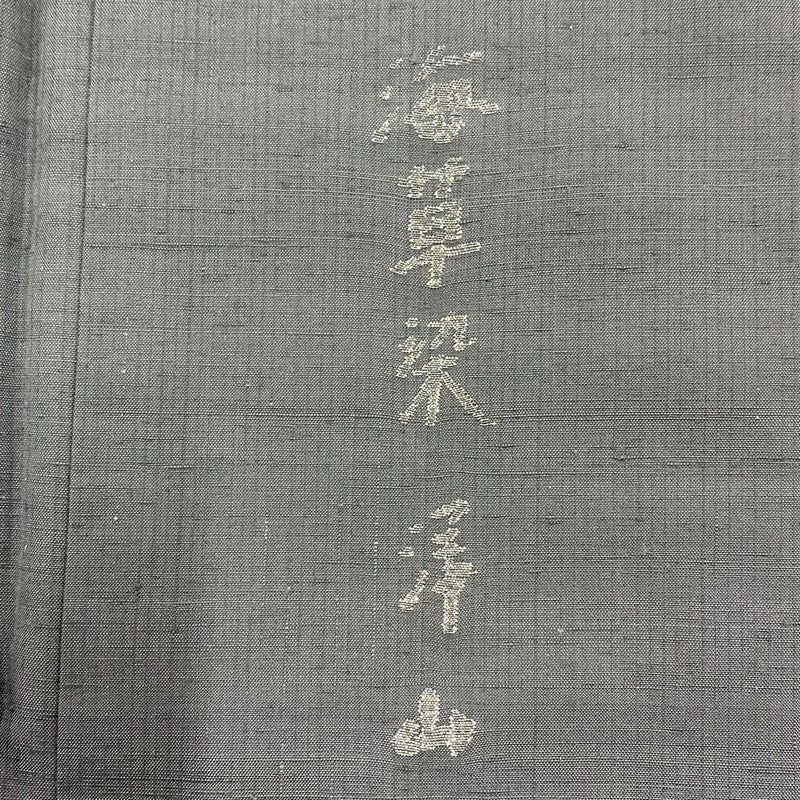 海草染 澤山